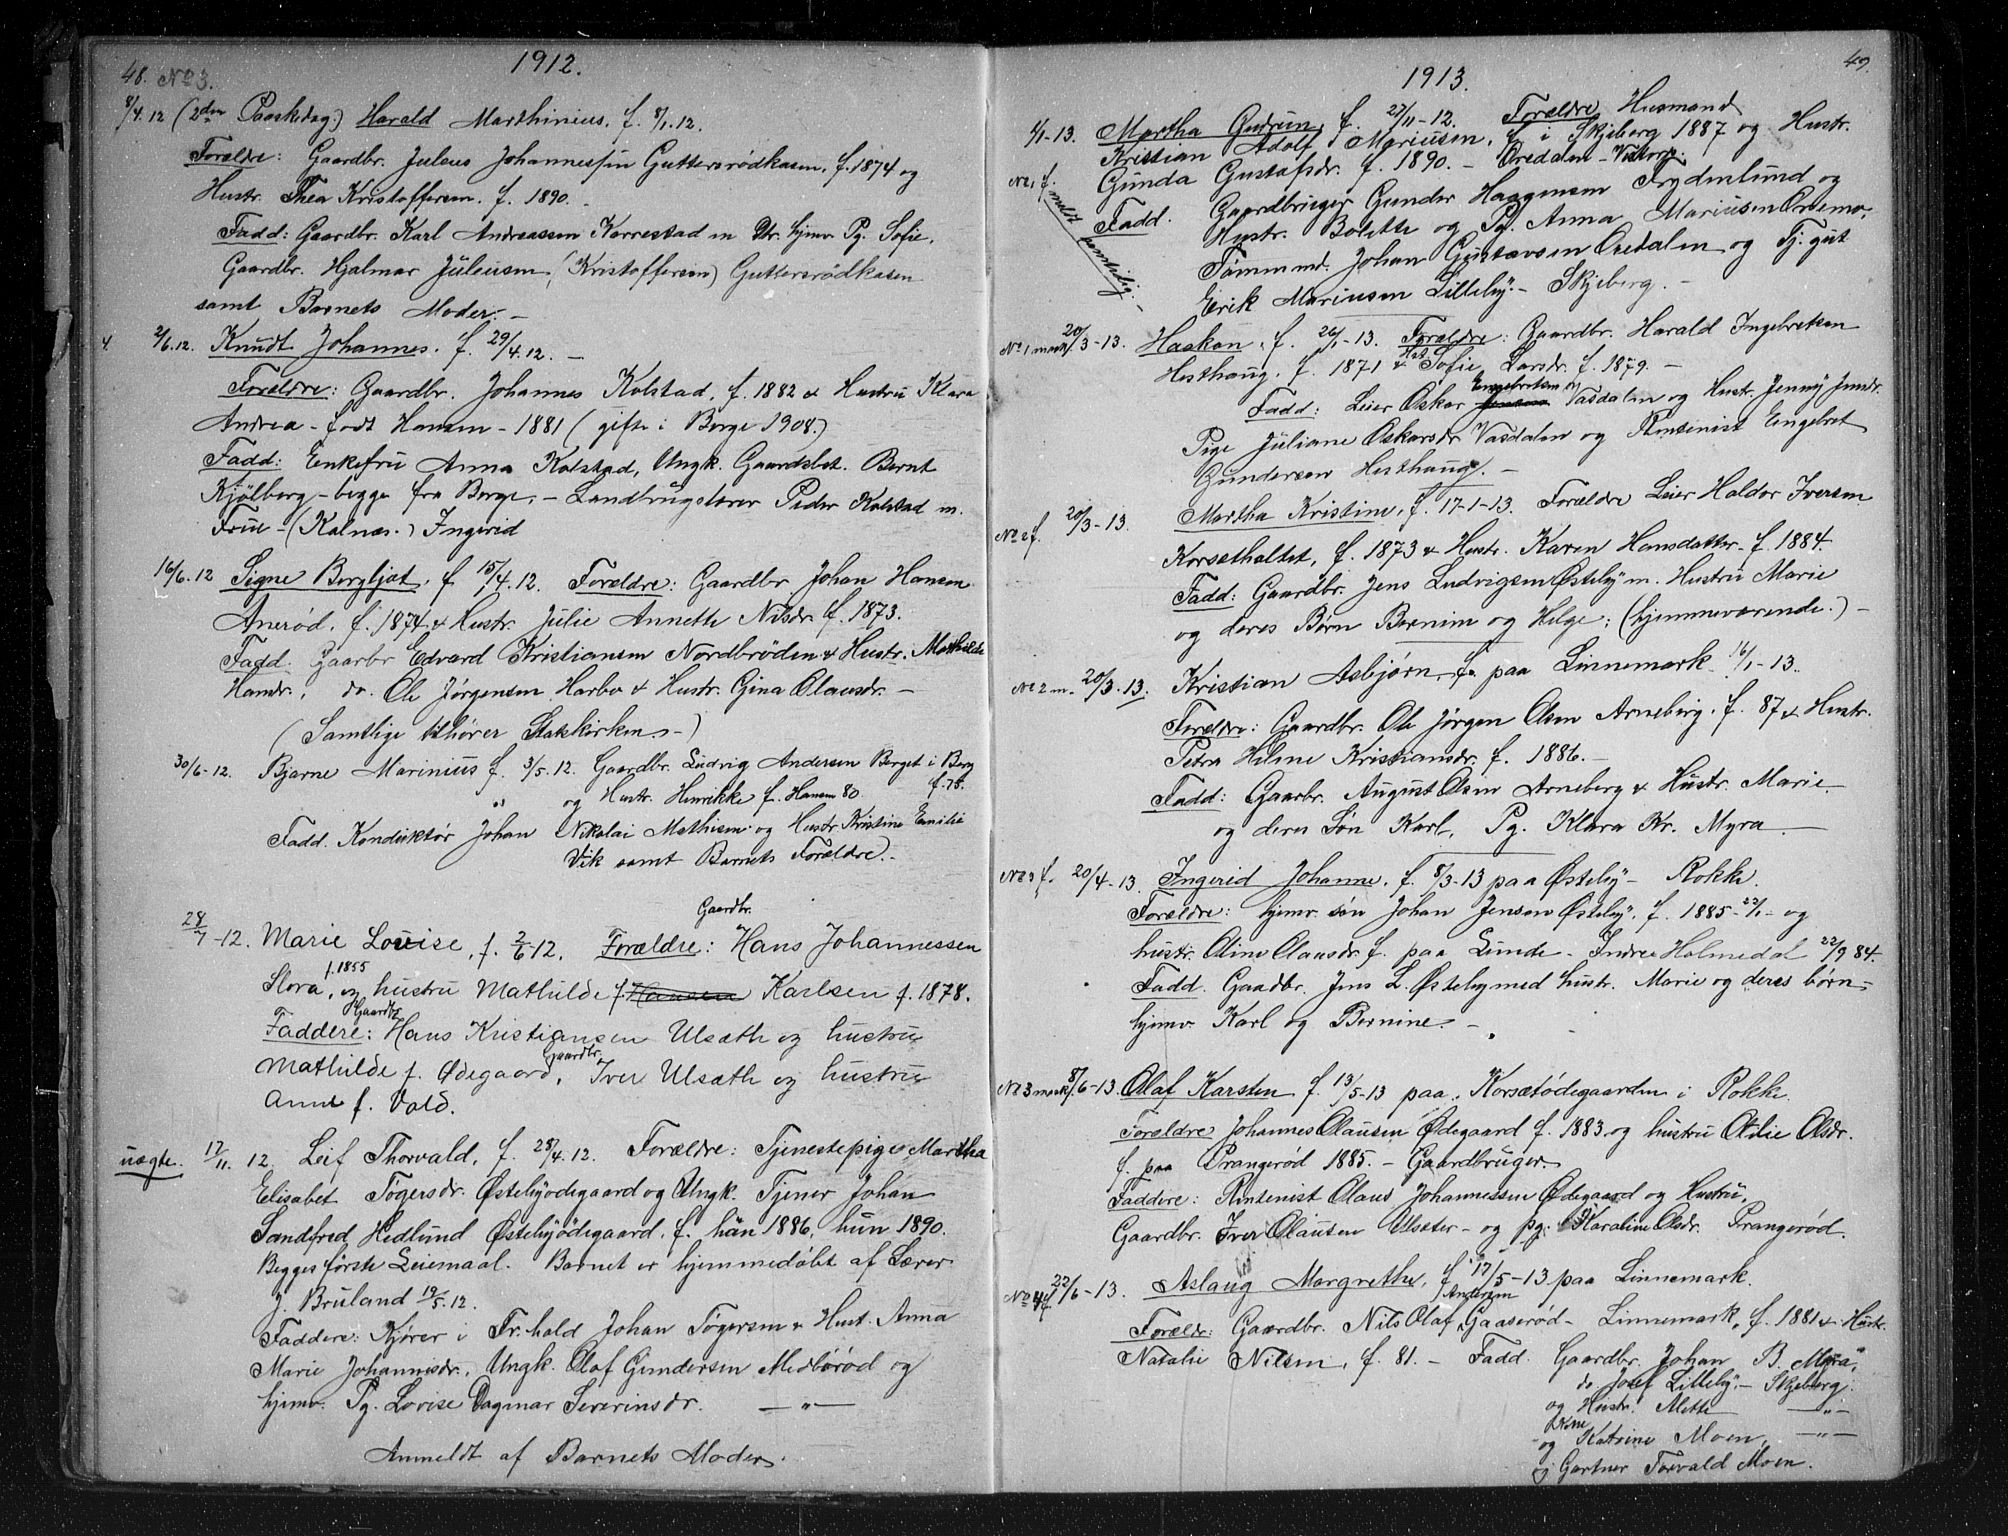 48. No 3.
1912.
8/4.12 (2den Paaskedag.) Harald Marthinius. f. 8/1.12.
Forældre: Gaardbr. Juleus Johannessen Guttersrödkasen, f. 1874 og
Hustr. Thea Kristoffersen. f. 1890.
Fadd: Gaardbr. Karl Andreassen Karrestad m Dtr. hjmv. Pg. Sofie,
Gaardbr. Hjalmar Juleusen, (Kristoffersen) Guttersrödkasen
samt Barnets Moder. —
4. 2/6.12. Knudt Johannes. f. 29/4.12. —
Forældre: Gaardbr. Johannes Kolstad, f. 1882 & Hustru Klara
Andrea - født Hansen - 1881 (gifte i Berge 1908.)
Fadd: Enkefru Anna Kolstad, Ungk. Gaardsbst. Bernt
Kjölberg - begge fra Berge, - Landbrugslærer Peder Kolstad m.
Frue - (Kalnæs.) Ingerid
16/6.12 Signe Bergljot, f 15/4.12. Forældre: Gaardbr. Johan Hansen
Anerød, f. 1874 & Hustr. Julie Annette Nilsdr. f. 1873.
Fadd. Gaarbr Edvard Kristiansen Nordbröden & Hustr. Mathilde
Hansdr., do. Ole Jørgensen Harbo & Hustr. Gina Olausdr. —
(Samtlige tilhører Statskirken. -)
30/6-12. Bjarne Marinius f. 3/5.12. Gaardbr. Ludvig Andersen Berget i Berg
f. 78.
og Hustr. Henrikke f. Hansen 80
Fadd. Konduktör Johan Nikolai Mathisen og Hustr. Kristine Emilie
Vik samt Barnets Forældre. -
Gaardbr.
28/7-12. Marie Louise, f. 2/6 12. Forældre: Hans Johannessen
f. 1855
Slora, og hustru Mathilde f. Hansen Karlsen f. 1878.
Gaardbr
Faddere: Hans Kristiansen Ulsæth og hustru
Gaardbr.
Mathilde f. Ødegaard, Iver Ulsæth og hustru
Anne f. Vold.
uægte. 17/11. 12. Leif Thorvald, f. 28/4.12. Forældre: Tjenestepige Martha
Elisabet Tögersdr. Østebyödegaard og Ungk. Tjener Johan
Sandfred Hedlund Østebyödegaard, f. han 1886, hun 1890.
Begges förste Leiemaal. Barnet er hjemmedöbt af Lærer
J. Bruland 19/5.12.
Faddere: Kjører i Fr.hald Johan Tögersen & Hust. Anna
Marie Johannesdr., Ungk. Olaf Gundersen Medbörød og
hjmv. Pg. Lovise Dagmar Severinsdr. — „ —
Anmeldt af Barnets Moder.
49.
1913.
1/1-13. Martha Gudrun, f. 27/11-12. Forældre Husmand
Kristian Adolf Mariusen, f. i Skjeberg 1887 og Hustr.
No 1 f. Gunda Gustafsdr. f. 1890. - Oredalen - Vistorp.
meldt
Fadd. Gaardbruger Gunder Haagensen Frydenlund og
Hustr. Bolette og Pg. Anna Mariusen Oremo,
Tömmmd. Johan Gustavsen Oredalen og Tj. gut
Erik Mariusen Lilleby. - Skjeberg. -
No 1 mark. 20/3-13. Haakon, f. 26/1-13. Forældre: Gaardbr. Harald Ingebretsen
Hesthaug. f. 1871 & Hst. Sofie Larsdr. f. 1879. —
Engebretsen
Fadd: Leier Oskar Jensen Vasdalen og Hustr. Jenny Jensdr.
Pige Juliane Oskarsdr Vasdalen og Rentenist Engebret
Gundersen Hesthaug. —
No 2 f. 20/3-13. Martha Kristine, f. 17-1-13. Forældre Leier Haldor Iversen
Korsethaltet, f. 1873 & Hustr. Karen Hansdatter. f. 1884.
Fadd: Gaardbr. Jens Ludvigsen Østeby m. Hustru Marie
og deres Børn Bernine og Helge; (hjemmeværende.) -
No 2 m. 20/3-13. Kristian Asbjørn, f. paa Linnemark 16/1-13.
Forældre: Gaardbr. Ole Jørgen Olsen Arneberg, f. 87 & Hustr.
Petra Hilme Kristiansdr. f. 1886. -
Fadd: Gaarbr. August Olsen Arneberg & Hustr. Marie
og deres Søn Karl, Pg. Klara Kr. Myra. —
No 3 f. 20/4-13. Ingerid Johanne, f. 8/3-13 paa Østeby - Rokke.
Forældre: hjemv. søn Johan Jensen Østeby, f. 1885-22/1- og
hustr. Oline Olausdr. f. paa Lunde - Indre Holmedal 22/9 84.
Fadd. Gaardbr. Jens L. Østeby med hustr. Marie og deres børn -
hjemv. Karl og Bernine. -
No 3 mark. 8/6-13. Olaf Karsten f. 13/5-13 paa Korsetödegaarden i Rokke.
Forældre Johannes Olausen Ødegaard f. 1883 og hustru Otilie Olsdr.
f. paa Prangerød 1885. - Gaardbruger.
Faddere: Rentenist Olaus Johannessen Ødegaard og Hustru,
Gaardbr. Iver Olausen Ulsæter - og pg. Karoline Olsdr. Prangerød.
No 4 f. 22/6-13. Aslaug Margrethe, f 17/5-13 paa Linnemark.
Andersen
Forældr: Gaardbr. Nils Olaf Gaaserød - Linnemark, f. 1881 & Hustr.
Natalie Nilsen, f. 81. - Fadd. Gaardbr. Johan B. Myra,
do Josef Lilleby - Skjeberg.
og Hustr. Mette — „ —
og Katrine Moen, — „ —
og Gartner Torvald Moen.